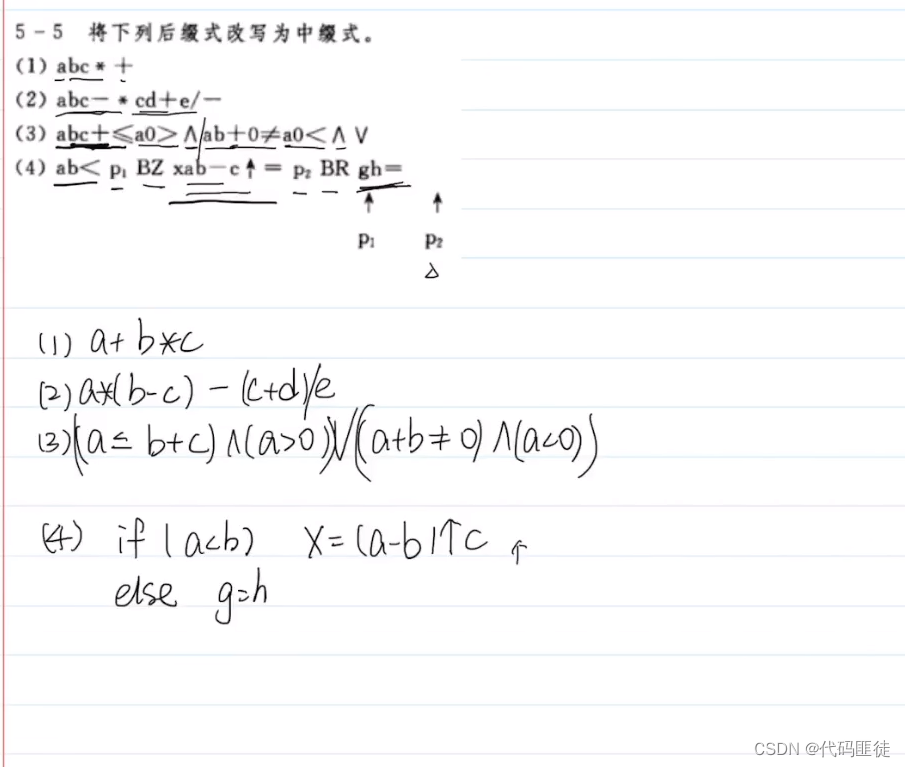 5-5 将下列后缀式改写为中缀式。
(1) abc * +
(2) abc- * cd+e/-
(3) abc+≤a0> ∧ab+0≠a0< ∧ ∨
(4) ab< p₁ BZ xab-c↑= p₂ BR gh=
↑ ↑
p₁ p₂
△
(1) a+ b*c
(2) a*(b-c) - (c+d)/e
(3) (a≤ b+c) ∧(a>0))∨((a+b≠0) ∧(a<0))
(4) if (a<b) x=(a-b)↑c ↑
else g=h
CSDN @代码匪徒